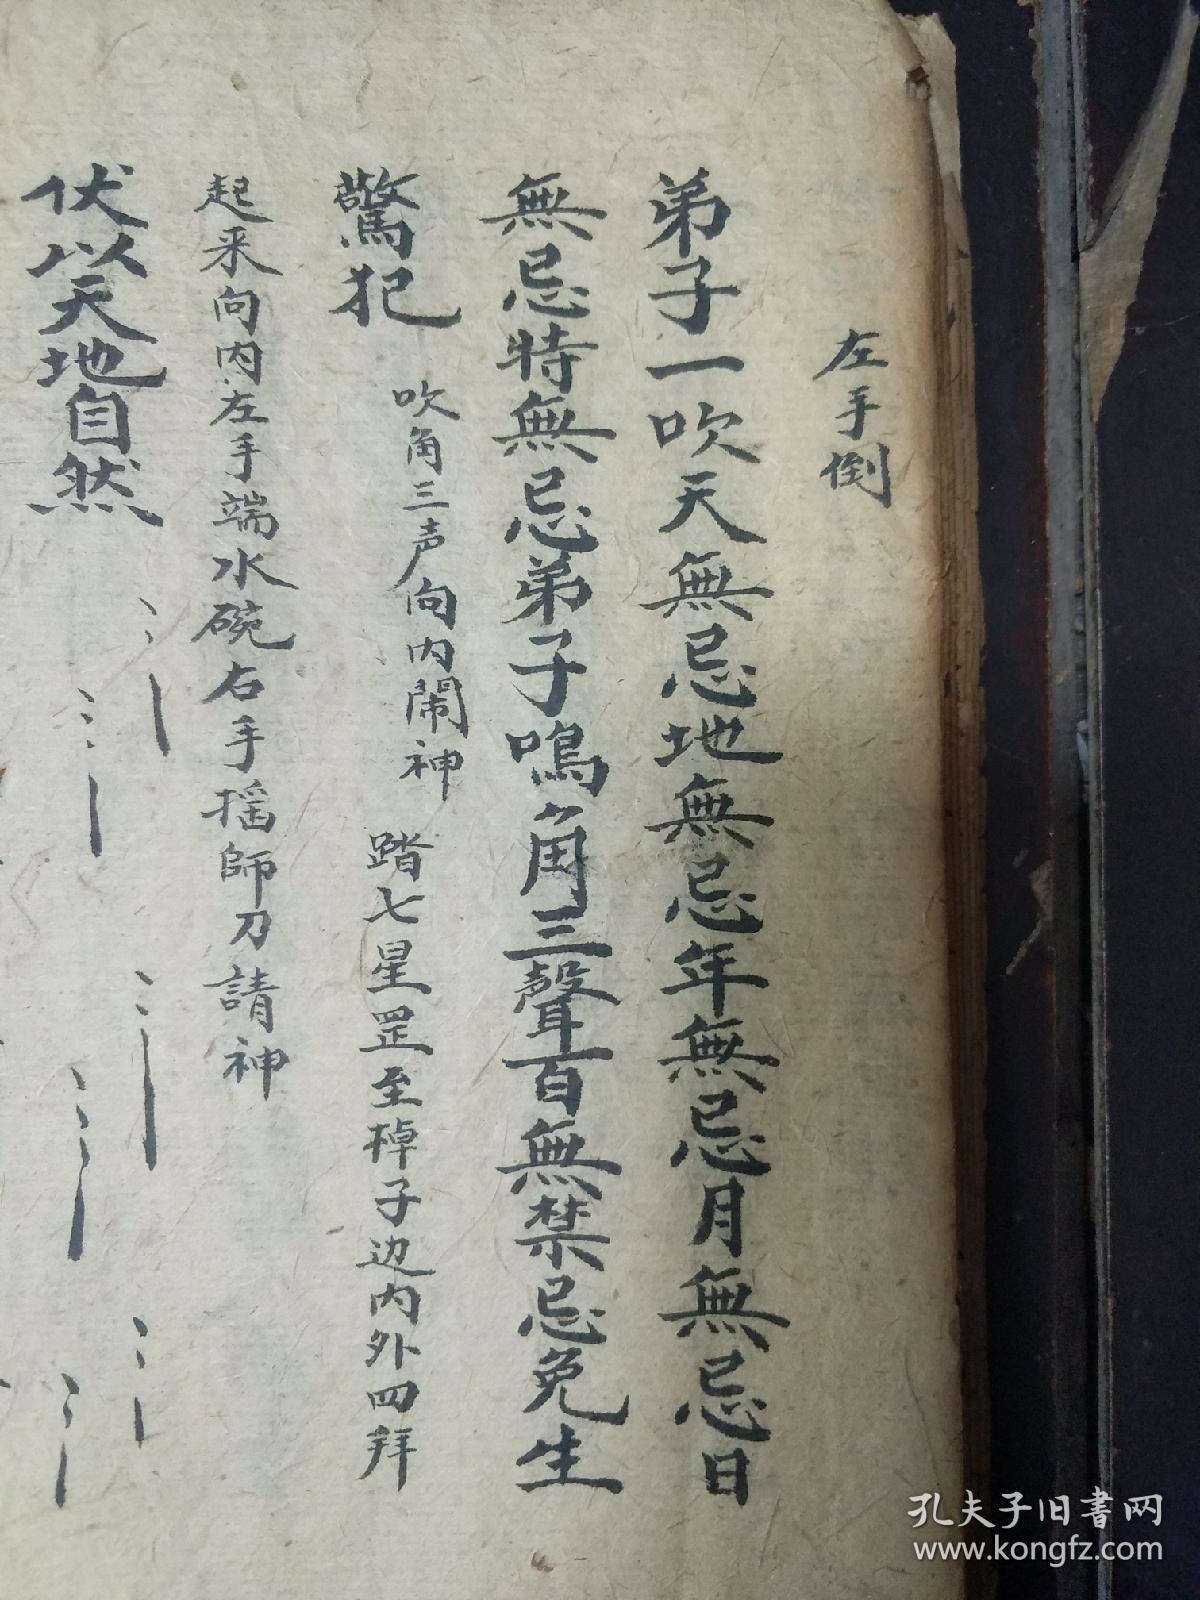 左手倒
弟子一吹天無忌地無忌年無忌月無忌日
無忌特無忌弟子鳴角三聲百無禁忌免生
驚犯
吹角三声向内鬧神
踏七星罡至棹子边内外四拜
起来向内左手端水碗右手摇師刀請神
伏以天地自然
孔夫子旧書网
www.kongfz.com